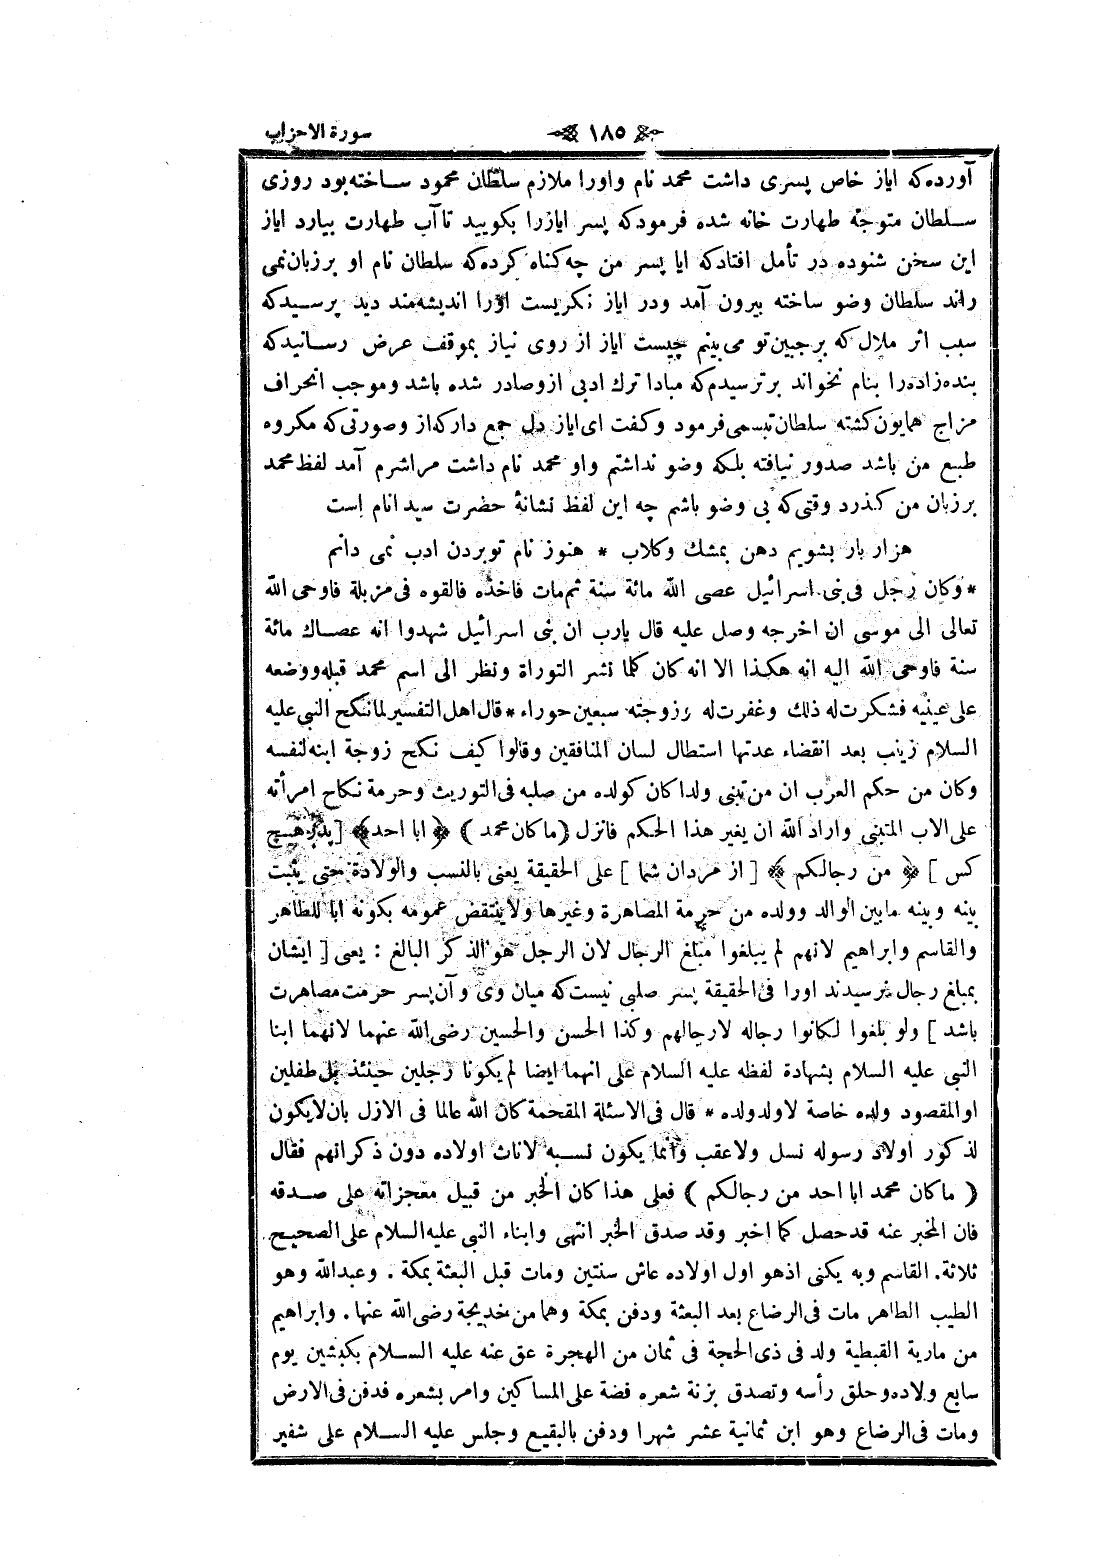 سورة الاحزاب
١٨٥
آورده‌كه اياز خاص پسرى داشت محمد نام واورا ملازم سلطان محمود ساخته‌بود روزى
سلطان متوجه طهارت خانه شده فرمودكه پسر ايازرا بكوييد تاآب طهارت بيارد اياز
اين سخن شنوده در تأمل افتادكه ايا پسر من چه‌كناه كرده‌كه سلطان نام او برزبان‌نمى
راند سلطان وضو ساخته بيرون آمد ودر اياز نكريست اورا انديشه‌مند ديد پرسيدكه
سبب اثر ملال كه برجبين‌تو مى‌بينم چيست اياز از روى نياز بموقف عرض رسانيدكه
بنده‌زاده‌را بنام نخواند برترسيدم‌كه مبادا ترك ادبى ازوصادر شده باشد وموجب انحراف
مزاج همايون‌كشته سلطان‌تبسمى‌فرمود وكفت اى‌اياز دل جمع داركه‌از وصورتى‌كه مكروه
طبع من باشد صدور نيافته بلكه وضو نداشتم واو محمد نام داشت مراشرم آمد لفظ محمد
برزبان من كذرد وقتى‌كه بى وضو باشم چه اين لفظ نشانهٔ حضرت سيد انام است
هزار بار بشويم دهن بمشك وكلاب * هنوز نام توبردن ادب نمى دانم
* وكان رجل فى‌بنى اسرائيل عصى الله مائة سنة ثم‌مات فاخذوه فالقوه فى‌مزبلة فاوحى الله
تعالى الى موسى ان اخرجه وصل عليه قال يارب ان بنى اسرائيل شهدوا انه عصاك مائة
سنة فاوحى الله اليه انه هكذا الا انه كان كلما نشر التوراة ونظر الى اسم محمد قبله‌ووضعه
على‌عينيه فشكرت‌له ذلك وغفرت‌له وزوجته سبعين‌حوراء * قال‌اهل‌التفسير لمانكح النبى‌عليه
السلام زينب بعد انقضاء عدتها استطال لسان المنافقين وقالوا كيف نكح زوجة ابنه‌لنفسه
وكان من حكم العرب ان من‌تبنى ولداكان كولده من صلبه فى‌التوريث وحرمة نكاح امرأته
على‌الاب المتبنى واراد الله ان يغير هذا الحكم فانزل ( ماكان‌محمد ) ﴿ ابا احد ﴾ [ پدر هيچ
كس ] ﴿ من رجالكم ﴾ [ از مردان شما ] على الحقيقة يعنى بالنسب والولادة حتى يثبت
بينه وبينه مابين الوالد وولده من حرمة المصاهرة وغيرها ولاينتقض عمومه بكونه ابا للطاهر
والقاسم وابراهيم لانهم لم يبلغوا مبلغ الرجال لان الرجل هو الذكر البالغ : يعنى [ ايشان
بمبلغ رجال نرسيدند اورا فى‌الحقيقة پسر صلبى نيست‌كه ميان وى و آن‌پسر حرمت‌مصاهرت
باشد ] ولو بلغوا لكانوا رجاله لارجالهم وكذا الحسن والحسين رضى‌الله عنهما لانهما ابنا
النبى عليه السلام بشهادة لفظه عليه السلام على انهما ايضا لم‌يكونا رجلين حينئذ بل‌طفلين
اوالمقصود ولده خاصة لاولدولده * قال فى‌الاسئلة المقحمة كان الله عالما فى الازل بان‌لايكون
لذكور اولاد رسوله نسل ولاعقب وانما يكون نسبه لاناث اولاده دون ذكرانهم فقال
( ماكان محمد ابا احد من رجالكم ) فعلى هذا كان الخبر من قبيل معجزاته على صدقه
فان المخبر عنه قدحصل كما اخبر وقد صدق الخبر انتهى وابناء النبى عليه‌السلام على‌الصحيح
ثلاثة. القاسم وبه يكنى اذهو اول اولاده عاش سنتين ومات قبل البعثة بمكة . وعبدالله وهو
الطيب الطاهر مات فى‌الرضاع بعد البعثة ودفن بمكة وهما من‌خديجة رضى‌الله عنها . وابراهيم
من مارية القبطية ولد فى ذى‌الحجة فى ثمان من الهجرة عق عنه عليه السلام بكبشين يوم
سابع ولاده‌وحلق رأسه وتصدق بزنة شعره فضة على‌المساكين وامر بشعره فدفن‌فى‌الارض
ومات فى‌الرضاع وهو ابن ثمانية عشر شهرا ودفن بالبقيع وجلس عليه السلام على شفير